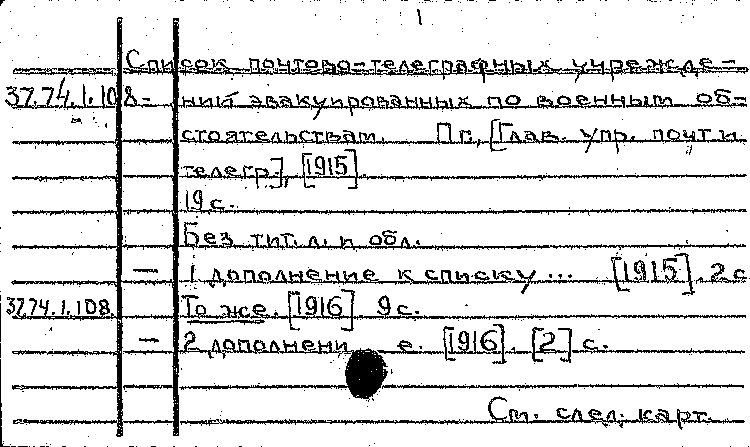 1
Список почтово-телеграфных учрежде-
37.74.1.108- ний эвакуированных по военным об-
стоятельствам. Пг., [Глав. упр. почт и
телегр.], [1915].
19 с.
Без тит. л. и обл.
— 1 дополнение к списку... [1915]. 2 с
37.74.1.108. То же. [1916] 9 с.
— 2 дополнени е. [1916]. [2] с.
См. след. карт.